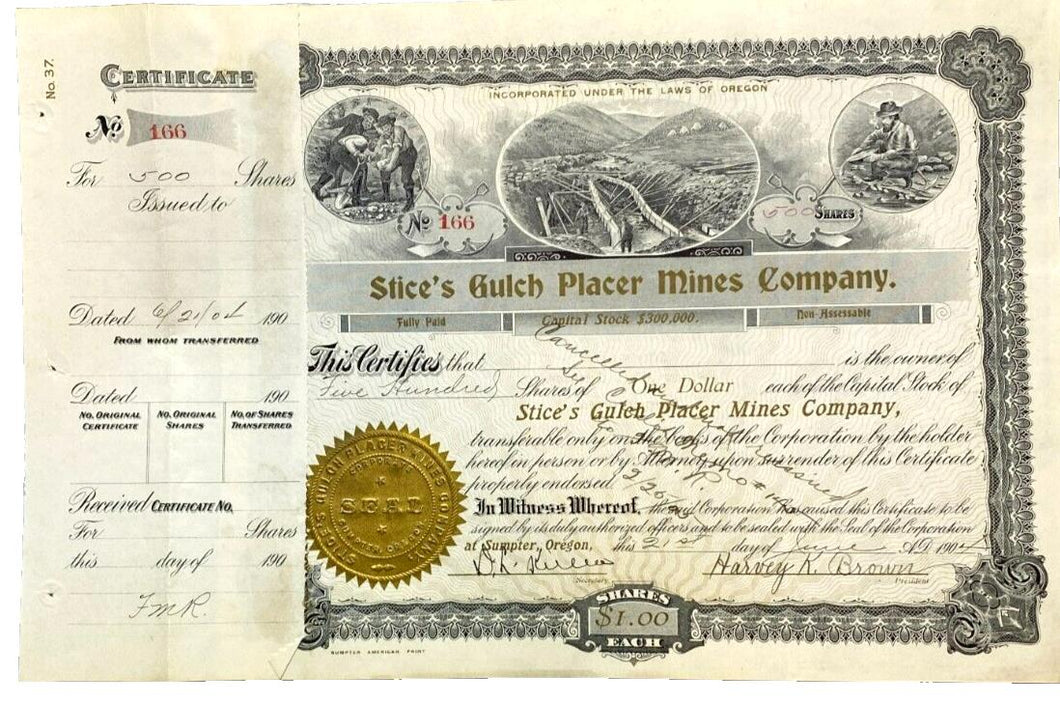 No. 37.
CERTIFICATE
No 166
For 500 Shares
Issued to
Dated 6/21/04 190
FROM WHOM TRANSFERRED
Dated 190
NO. ORIGINAL CERTIFICATE
NO. ORIGINAL SHARES
NO. OF SHARES TRANSFERRED
Received CERTIFICATE NO.
For Shares
this day of 190
FMR.
INCORPORATED UNDER THE LAWS OF OREGON
No 166
500 SHARES
Stice's Gulch Placer Mines Company.
Fully Paid
Capital Stock $300,000.
Non-Assessable
This Certifies that is the owner of
Five Hundred Shares of One Dollar each of the Capital Stock of
Stice's Gulch Placer Mines Company,
transferable only on the books of the Corporation by the holder
hereof in person or by Attorney upon surrender of this Certificate
properly endorsed.
In Witness Whereof, the said Corporation has caused this Certificate to be
signed by its duly authorized officers and to be sealed with the Seal of the Corporation
at Sumpter, Oregon, this 21st day of June A.D. 1904
Harvey K. Brown
Secretary.
President
Cancelled
STICE'S GULCH PLACER MINES COMPANY
SEAL
SUMPTER, OREGON
SHARES
$1.00
EACH
SUMPTER AMERICAN PRINT